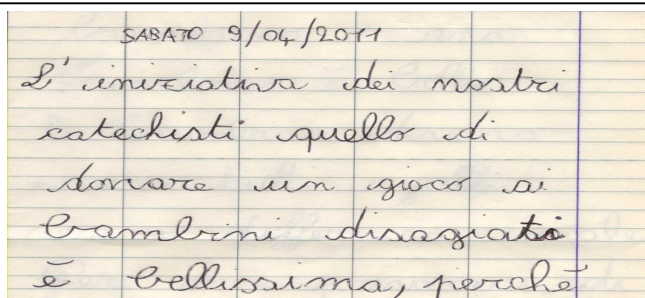 SABATO 9/04/2011
L'iniziativa dei nostri
catechisti quello di
donare un gioco ai
bambini disagiati
è bellissima, perché